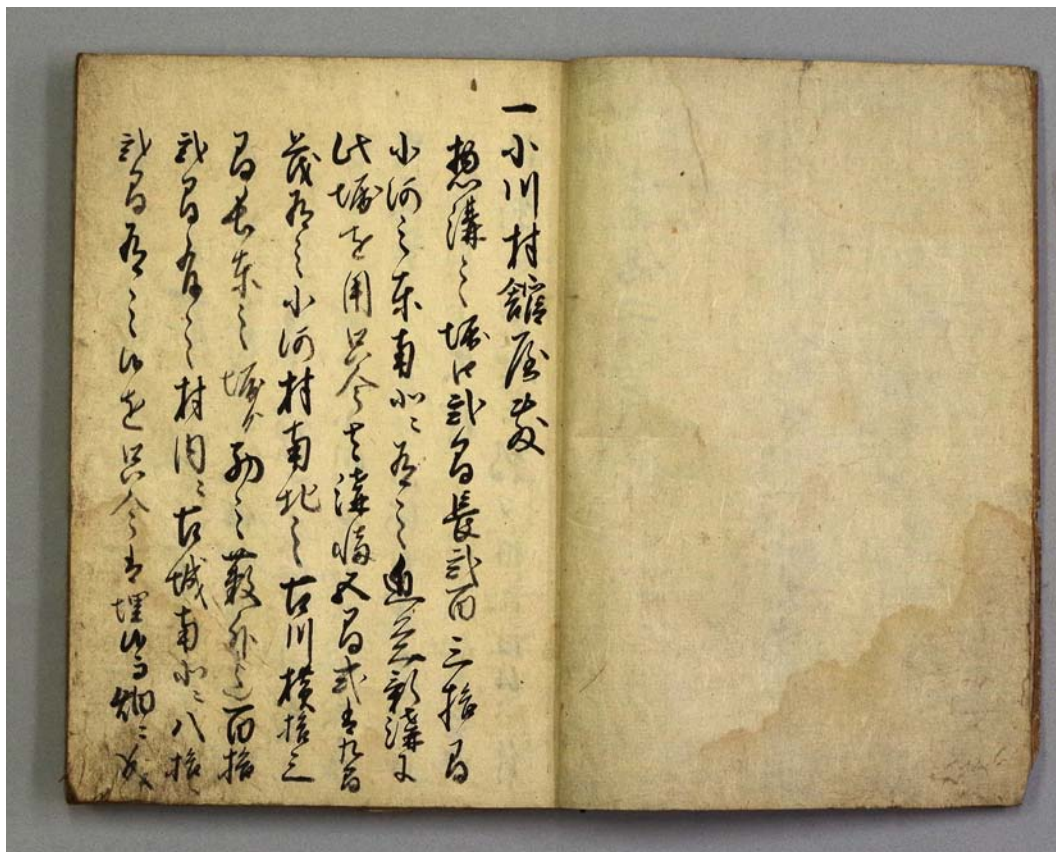 一小川村舘屋敷
惣溝之堀口弐間長弐百三拾間
小河之東南北ニ有之近年新溝ニ
此堀を用只今者溝幅五間或者九間
茂有之小河村南北之古川横拾三
間長東之堀ゟ西之藪外迄百拾
弐間有之村内ニ古城南北ニ八拾
弐間有之候を只今者埋候而畑ニ成